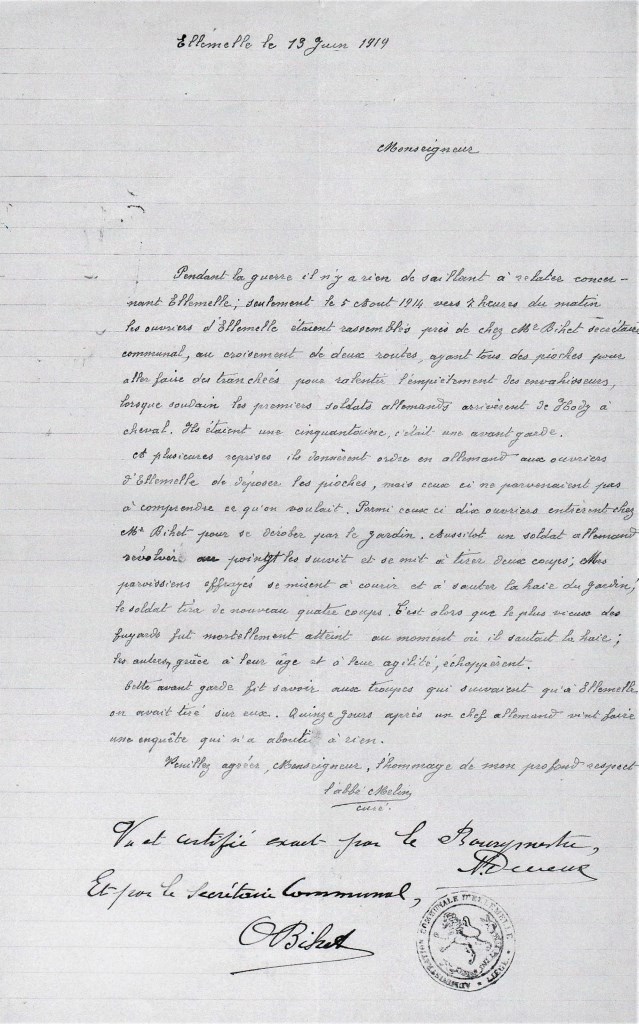 Ellemelle le 13 Juin 1919
Monseigneur
Pendant la guerre il n'y a rien de saillant à relater concer-
nant Ellemelle; seulement le 5 Aout 1914 vers 7 heures du matin
les ouvriers d'Ellemelle étaient rassemblés près de chez Mr Bihet secrétaire
communal, au croisement de deux routes, ayant tous des pioches pour
aller faire des tranchées pour ralentir l'empiètement des envahisseurs,
lorsque soudain les premiers soldats allemands arrivèrent de Hody à
cheval. Ils étaient une cinquantaine, c'était une avant garde.
A plusieures reprises ils donnèrent ordre en allemand aux ouvriers
d'Ellemelle de déposer les pioches, mais ceux ci ne parvenaient pas
à comprendre ce qu'on voulait. Parmi ceux ci dix ouvriers entièrent chez
Mr Bihet pour se dérober par le jardin. Aussitot un soldat allemand
révolver au poingt les suivit et se mit à tirer deux coups; Mes
paroissiens effrayés se misent à courir et à sauter la haie du jardin;
le soldat tira de nouveau quatre coups. C'est alors que le plus vieux des
fuyards fut mortellement atteint au moment où il sautait la haie;
les autres, grâce à leur âge et à leur agilité, échappèrent.
Cette avant garde fit savoir aux troupes qui suivaient qu'à Ellemelle
on avait tiré sur eux. Quinze jours après un chef allemand vint faire
une enquête qui n'a abouti à rien.
Veuillez agréer, Monseigneur, l'hommage de mon profond respect
l'abbé Merlin
curé.
Vu et certifié exact par le Bourgmestre,
Et par le Secrétaire Communal,
O Bihet
ADMINISTRATION COMMUNALE D'ELLEMELLE
LIEGE